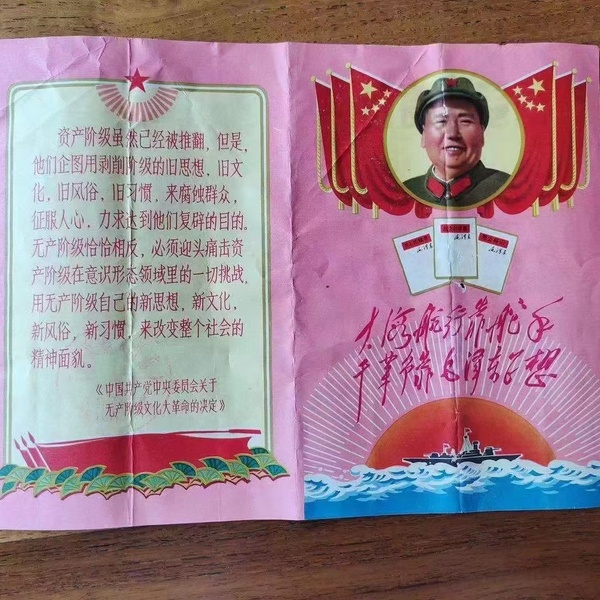 资产阶级虽然已经被推翻，但是，
他们企图用剥削阶级的旧思想，旧文
化，旧风俗，旧习惯，来腐蚀群众，
征服人心，力求达到他们复辟的目的。
无产阶级恰恰相反，必须迎头痛击资
产阶级在意识形态领域里的一切挑战，
用无产阶级自己的新思想，新文化，
新风俗，新习惯，来改变整个社会的
精神面貌。
《中国共产党中央委员会关于
无产阶级文化大革命的决定》
大海航行靠舵手
干革命靠毛泽东思想